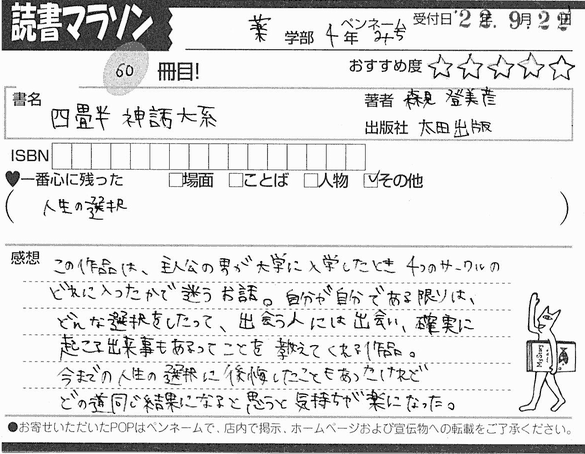 読書マラソン
薬 学部 4年 ペンネーム みち 受付日 '22. 9月22日
60 冊目! おすすめ度 ☆☆☆☆☆
書名 四畳半 神話大系
著者 森見 登美彦
出版社 太田出版
ISBN
♥一番心に残った □場面 □ことば □人物 ☑その他
( 人生の選択 )
感想 この作品は、主人公の男が大学に入学したとき 4つのサークルの
どれに入ったかで迷うお話。自分が自分である限りは、
どんな選択をしたって、出会う人には出会い、確実に
起こる出来事もあるってことを教えてくれる作品。
今までの人生の選択に後悔したこともあったけれど
どの道同じ結果になると思うと気持ちが楽になった。
●お寄せいただいたPOPはペンネームで、店内で掲示、ホームページおよび宣伝物への転載をご了承ください。